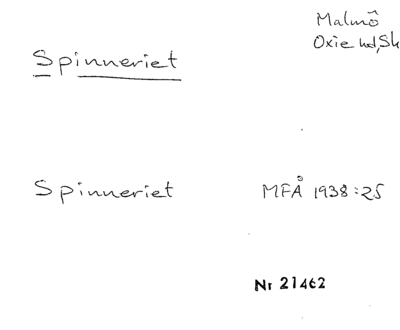 Malmö
Oxie hd, Sk
Spinneriet
Spinneriet MFÅ 1938:25
Nr 21462